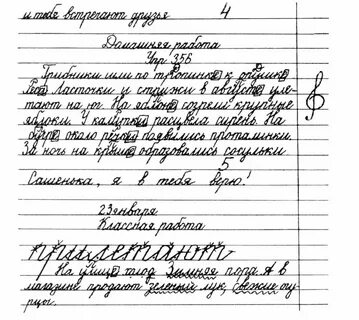 и тебя встречают друзья 4
Домашняя работа
Упр. 356
Грибники шли по тропинке к опушке
леса. Ласточки и стрижи в августе уле-
тают на юг. На яблоне созрели крупные
яблоки. У калитки расцвела сирень. На
бугре около речки появились проталинки.
За ночь на крыше образовались сосульки.
5
Сашенька, я в тебя верю!
23 января
Классная работа
На улице тюд Зимняя пора. А в
магазине продают зеленый лук, свежие огу-
рцы.